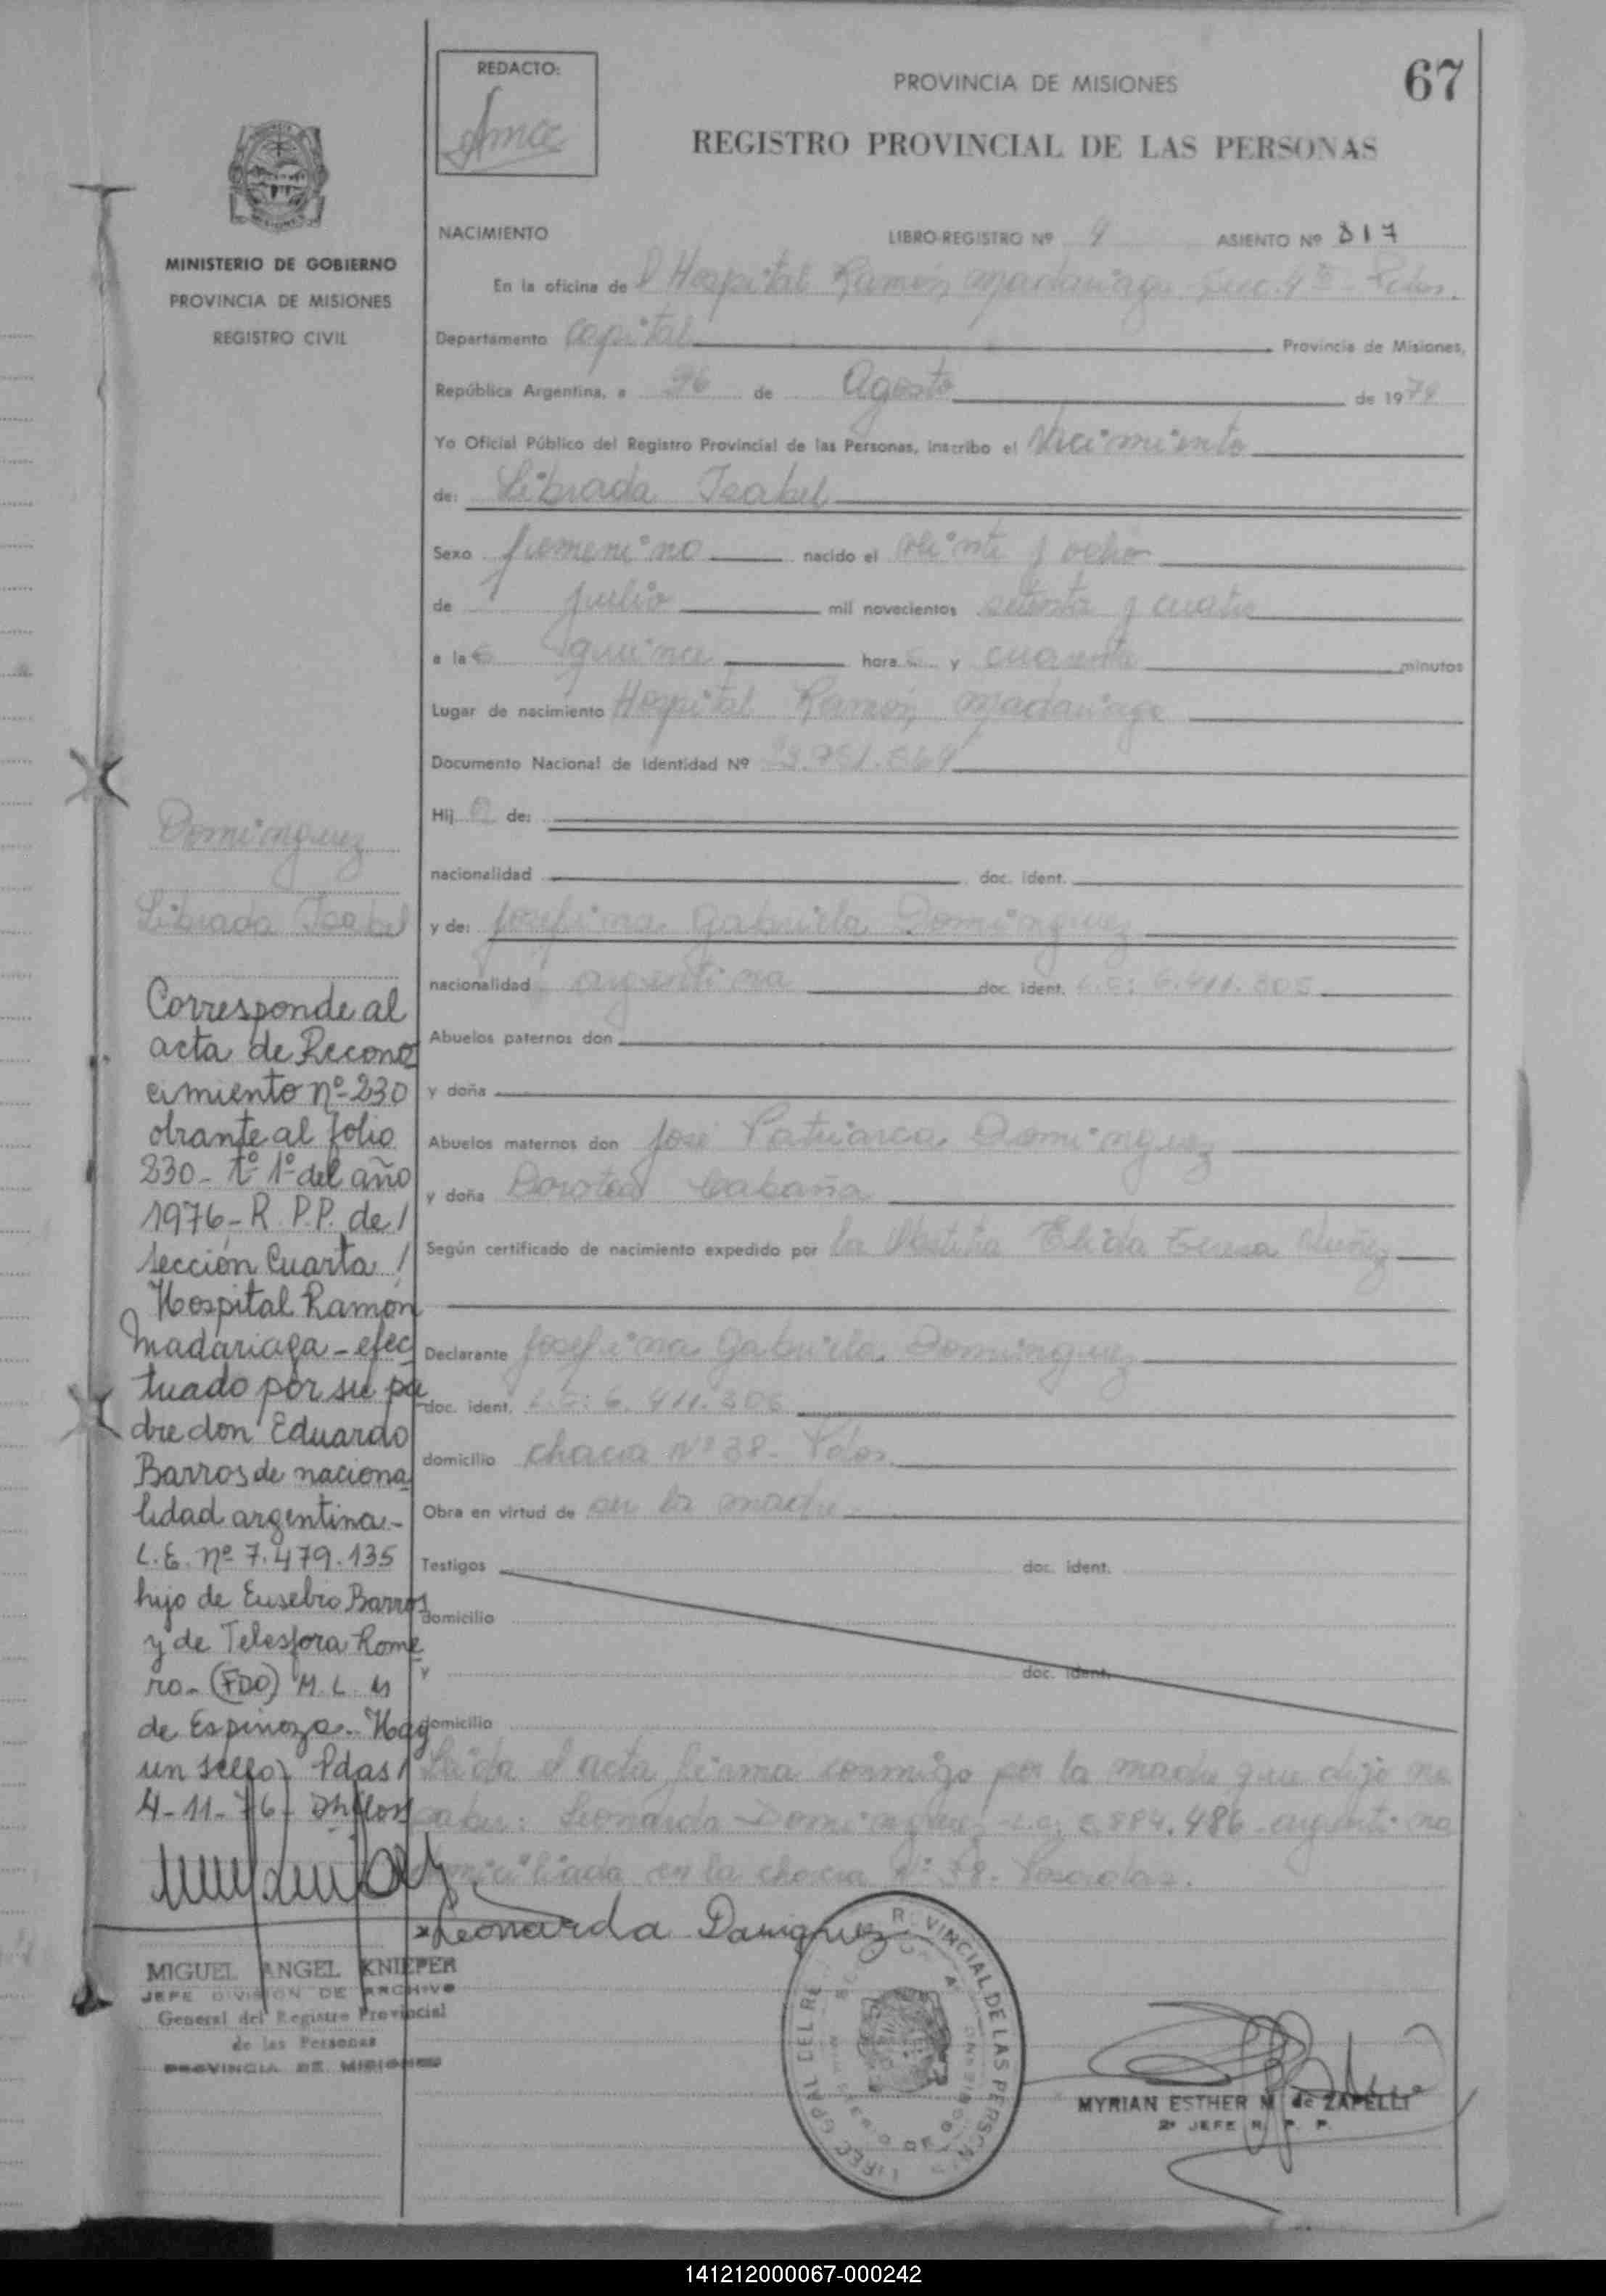 REDACTO:
PROVINCIA DE MISIONES
67
REGISTRO PROVINCIAL DE LAS PERSONAS
MINISTERIO DE GOBIERNO
PROVINCIA DE MISIONES
REGISTRO CIVIL
NACIMIENTO LIBRO-REGISTRO Nº 4 ASIENTO Nº 817
En la oficina de l Hospital Ramón Madariaga Secc. 4ta - Pdas.
Departamento Capital Provincia de Misiones,
República Argentina, a 26 de Agosto de 1974
Yo Oficial Público del Registro Provincial de las Personas, inscribo el Nacimiento
de: Librada Isabel
Sexo femenino nacido el veinte y ocho
de julio mil novecientos setenta y cuatro
a las quince horas y cuarenta minutos
Lugar de nacimiento Hospital Ramón Madariaga
Documento Nacional de Identidad Nº 23.751.569
Hij a de:
nacionalidad doc. ident.
y de: Josefina Gabriela Dominguez
nacionalidad argentina doc. ident. L.C: 6.411.305
Abuelos paternos don
y doña
Abuelos maternos don José Patriarca Dominguez
y doña Dorotea Cabaña
Según certificado de nacimiento expedido por la Partera Elida Teresa Nuñez
Declarante Josefina Gabriela Dominguez
doc. ident. L.C: 6.411.305
domicilio chacra Nº 38- Pdas.
Obra en virtud de ser la madre
Testigos doc. ident.
domicilio
y doc. ident.
domicilio
Leída el acta firma conmigo por la madre que dijo no
saber: Leonarda Dominguez -L.C: 884.486- argentina
domiciliada en la chacra Nº 38- Posadas.
Leonarda Daniguez
Dominguez
Librada Isabel
Corresponde al
acta de Recono
cimiento nº 230
obrante al folio
230- tº 1º del año
1976- R. P.P. de/
sección Cuarta/
Hospital Ramón
Madariaga - efec
tuado por su pa
dre don Eduardo
Barros de naciona
lidad argentina-
L.E. nº 7.479.135
hijo de Eusebio Barros
y de Telesfora Rome
ro- (FDO) M. L. M
de Espinoza- Hay
un sello) Pdas/
4-11-76-
MIGUEL ANGEL KNIEPER
JEFE DIVISION DE ARCHIVO
General del Registro Provincial
de las Personas
PROVINCIA DE MISIONES
MYRIAN ESTHER M. de ZAPELLI
2º JEFE R. P. P.
141212000067-000242